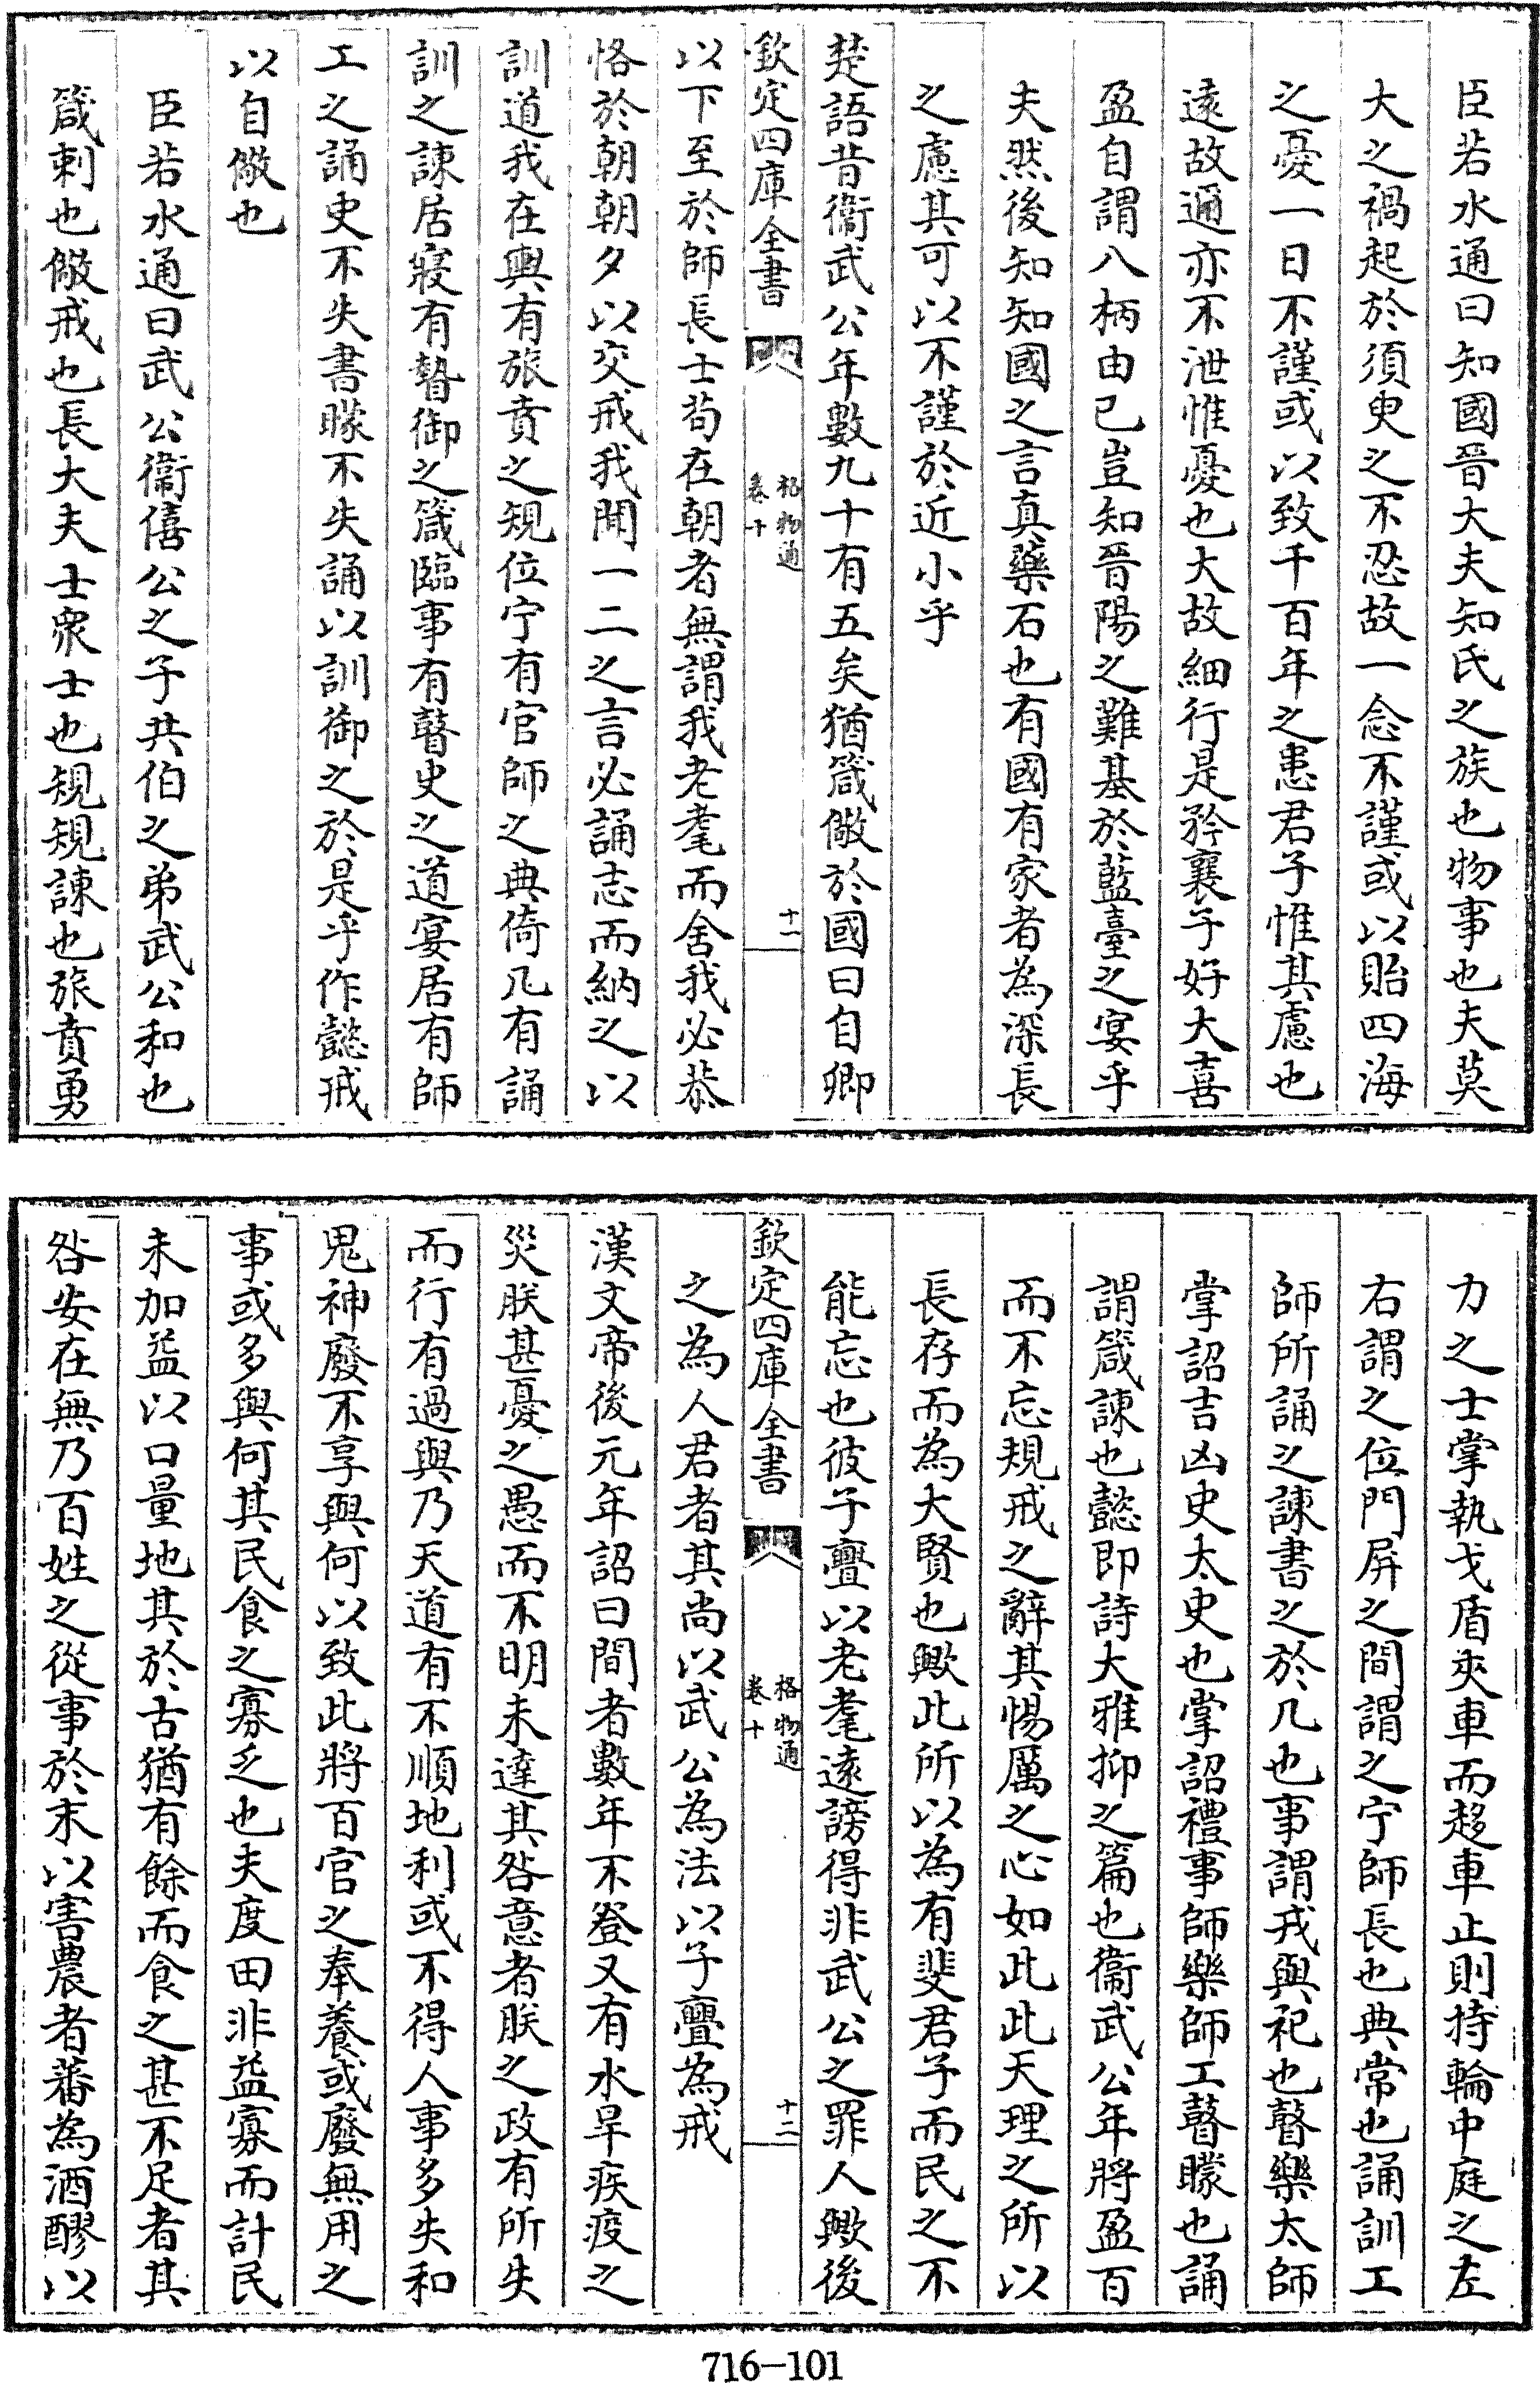 臣若水通曰知國晉大夫知氏之族也物事也夫莫
大之禍起於須臾之不忍故一念不謹或以貽四海
之憂一日不謹或以致千百年之患君子惟其慮也
遠故邇亦不泄惟憂也大故細行是矜襄子好大喜
盈自謂八柄由已豈知晉陽之難基於藍臺之宴乎
夫然後知知國之言真藥石也有國有家者為深長
之慮其可以不謹於近小乎
楚語昔衞武公年數九十有五矣猶箴儆於國曰自卿
欽定四庫全書
格物通
卷十
十一
以下至於師長士苟在朝者無謂我老耄而舍我必恭
恪於朝朝夕以交戒我聞一二之言必誦志而納之以
訓道我在輿有旅賁之規位宁有官師之典倚几有誦
訓之諫居寢有暬御之箴臨事有瞽史之道宴居有師
工之誦史不失書矇不失誦以訓御之於是乎作懿戒
以自儆也
臣若水通曰武公衞僖公之子共伯之弟武公和也
箴刺也儆戒也長大夫士衆士也規規諫也旅賁勇
力之士掌執戈盾夾車而趨車止則持輪中庭之左
右謂之位門屏之間謂之宁師長也典常也誦訓工
師所誦之諫書之於几也事謂戎與祀也瞽樂太師
掌詔吉凶史太史也掌詔禮事師樂師工瞽矇也誦
謂箴諫也懿即詩大雅抑之篇也衞武公年將盈百
而不忘規戒之辭其惕厲之心如此此天理之所以
長存而為大賢也歟此所以為有斐君子而民之不
能忘也彼子亹以老耄遠謗得非武公之罪人歟後
欽定四庫全書
格物通
卷十
十二
之為人君者其尚以武公為法以子亹為戒
漢文帝後元年詔曰間者數年不登又有水旱疾疫之
災朕甚憂之愚而不明未達其咎意者朕之政有所失
而行有過與乃天道有不順地利或不得人事多失和
鬼神廢不享與何以致此將百官之奉養或廢無用之
事或多與何其民食之寡乏也夫度田非益寡而計民
未加益以口量地其於古猶有餘而食之甚不足者其
咎安在無乃百姓之從事於末以害農者蕃為酒醪以
716-101